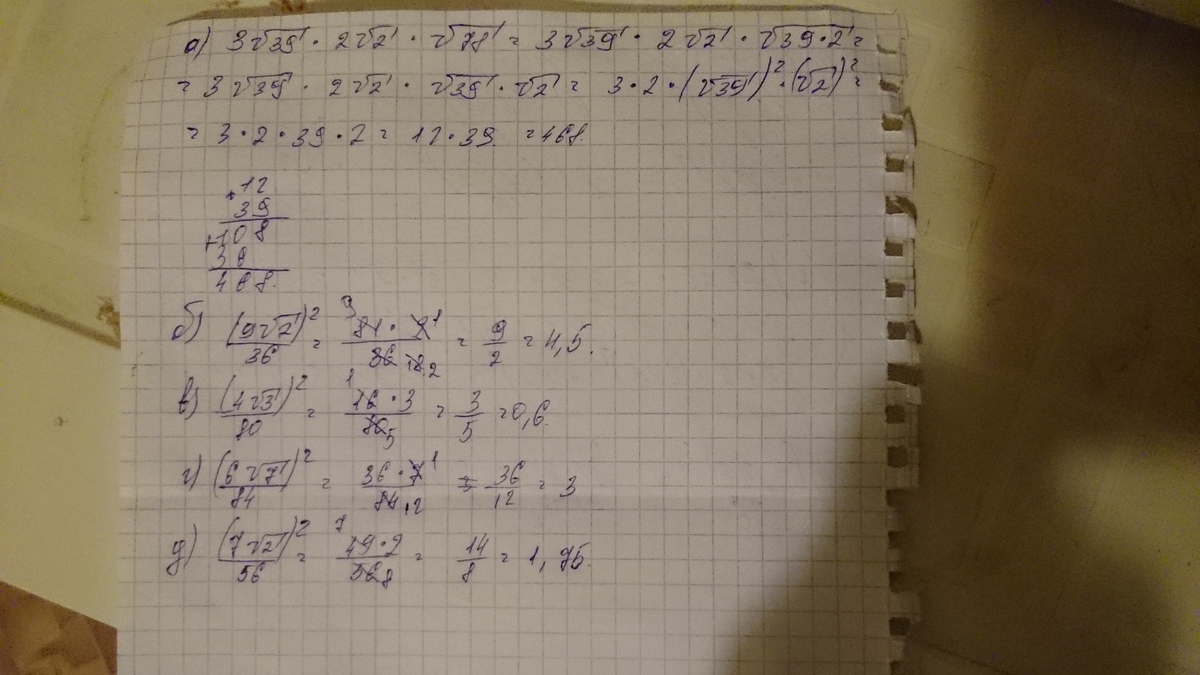 а) 3√39 · 2√2 · √78 = 3√39 · 2√2 · √39·2 =
= 3√39 · 2√2 · √39 · √2 = 3·2·(√39)²·(√2)² =
= 3·2·39·2 = 12·39 = 468.
12
39
+108
36
468.
б) (9√2)²/36 = 81·2/36 = 9/2 = 4,5.
в) (4√3)²/80 = 16·3/80 = 3/5 = 0,6.
г) (6√7)²/84 = 36·7/84 = 36/12 = 3
д) (7√2)²/56 = 49·2/56 = 14/8 = 1,75.